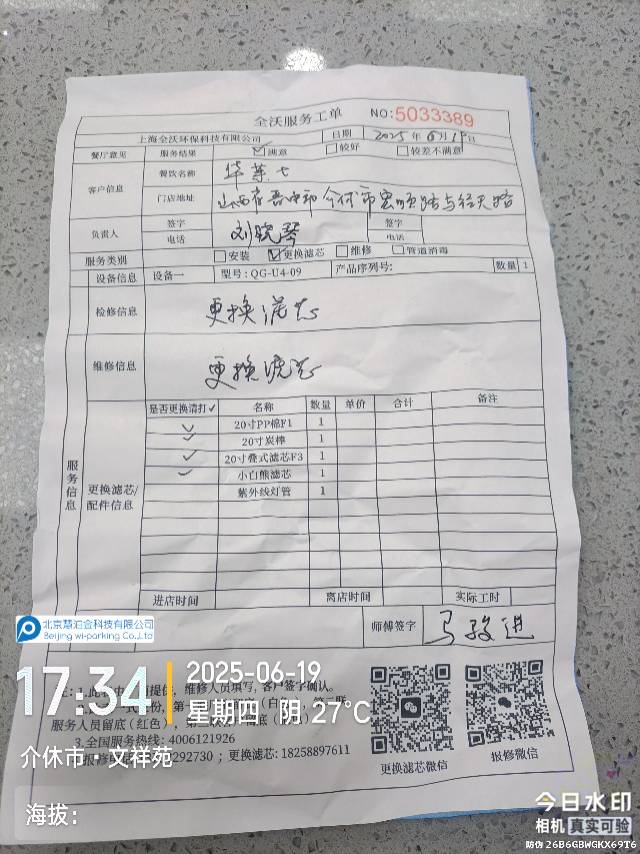 全沃服务工单 NO:5033389
上海全沃环保科技有限公司 日期 2025年6月19日
餐厅意见 服务结果 ☑满意 □较好 □较差不满意
客户信息 餐饮名称 华莱士
门店地址 山西省晋中市介休市宏顺路与经天路
负责人 签字 刘晓琴 签字
电话 电话
服务类别 □安装 ☑更换滤芯 □维修 □管道消毒
设备信息 设备一 型号:QG-U4-09 产品序列号: 数量 1
检修信息 更换滤芯
维修信息 更换滤芯
服务信息
更换滤芯/配件信息
是否更换请打✓ 名称 数量 单价 合计 备注
✓ 20寸PP棉F1 1
✓ 20寸炭棒 1
✓ 20寸叠式滤芯F3 1
✓ 小白熊滤芯 1
紫外线灯管 1
进店时间 离店时间 实际工时
师傅签字 马骏进
维修人员填写,客户签字确认。
服务人员留底(红色),
3.全国服务热线:4006121926
292730 ;更换滤芯:18258897611
更换滤芯微信 报修微信
北京慧泊金科技有限公司
Beijing wi-parking Co.,Ltd
17:34 2025-06-19
星期四 阴 27℃
介休市·文祥苑
海拔:
今日水印
相机 真实可验
防伪 26B6GBWGKX69T6